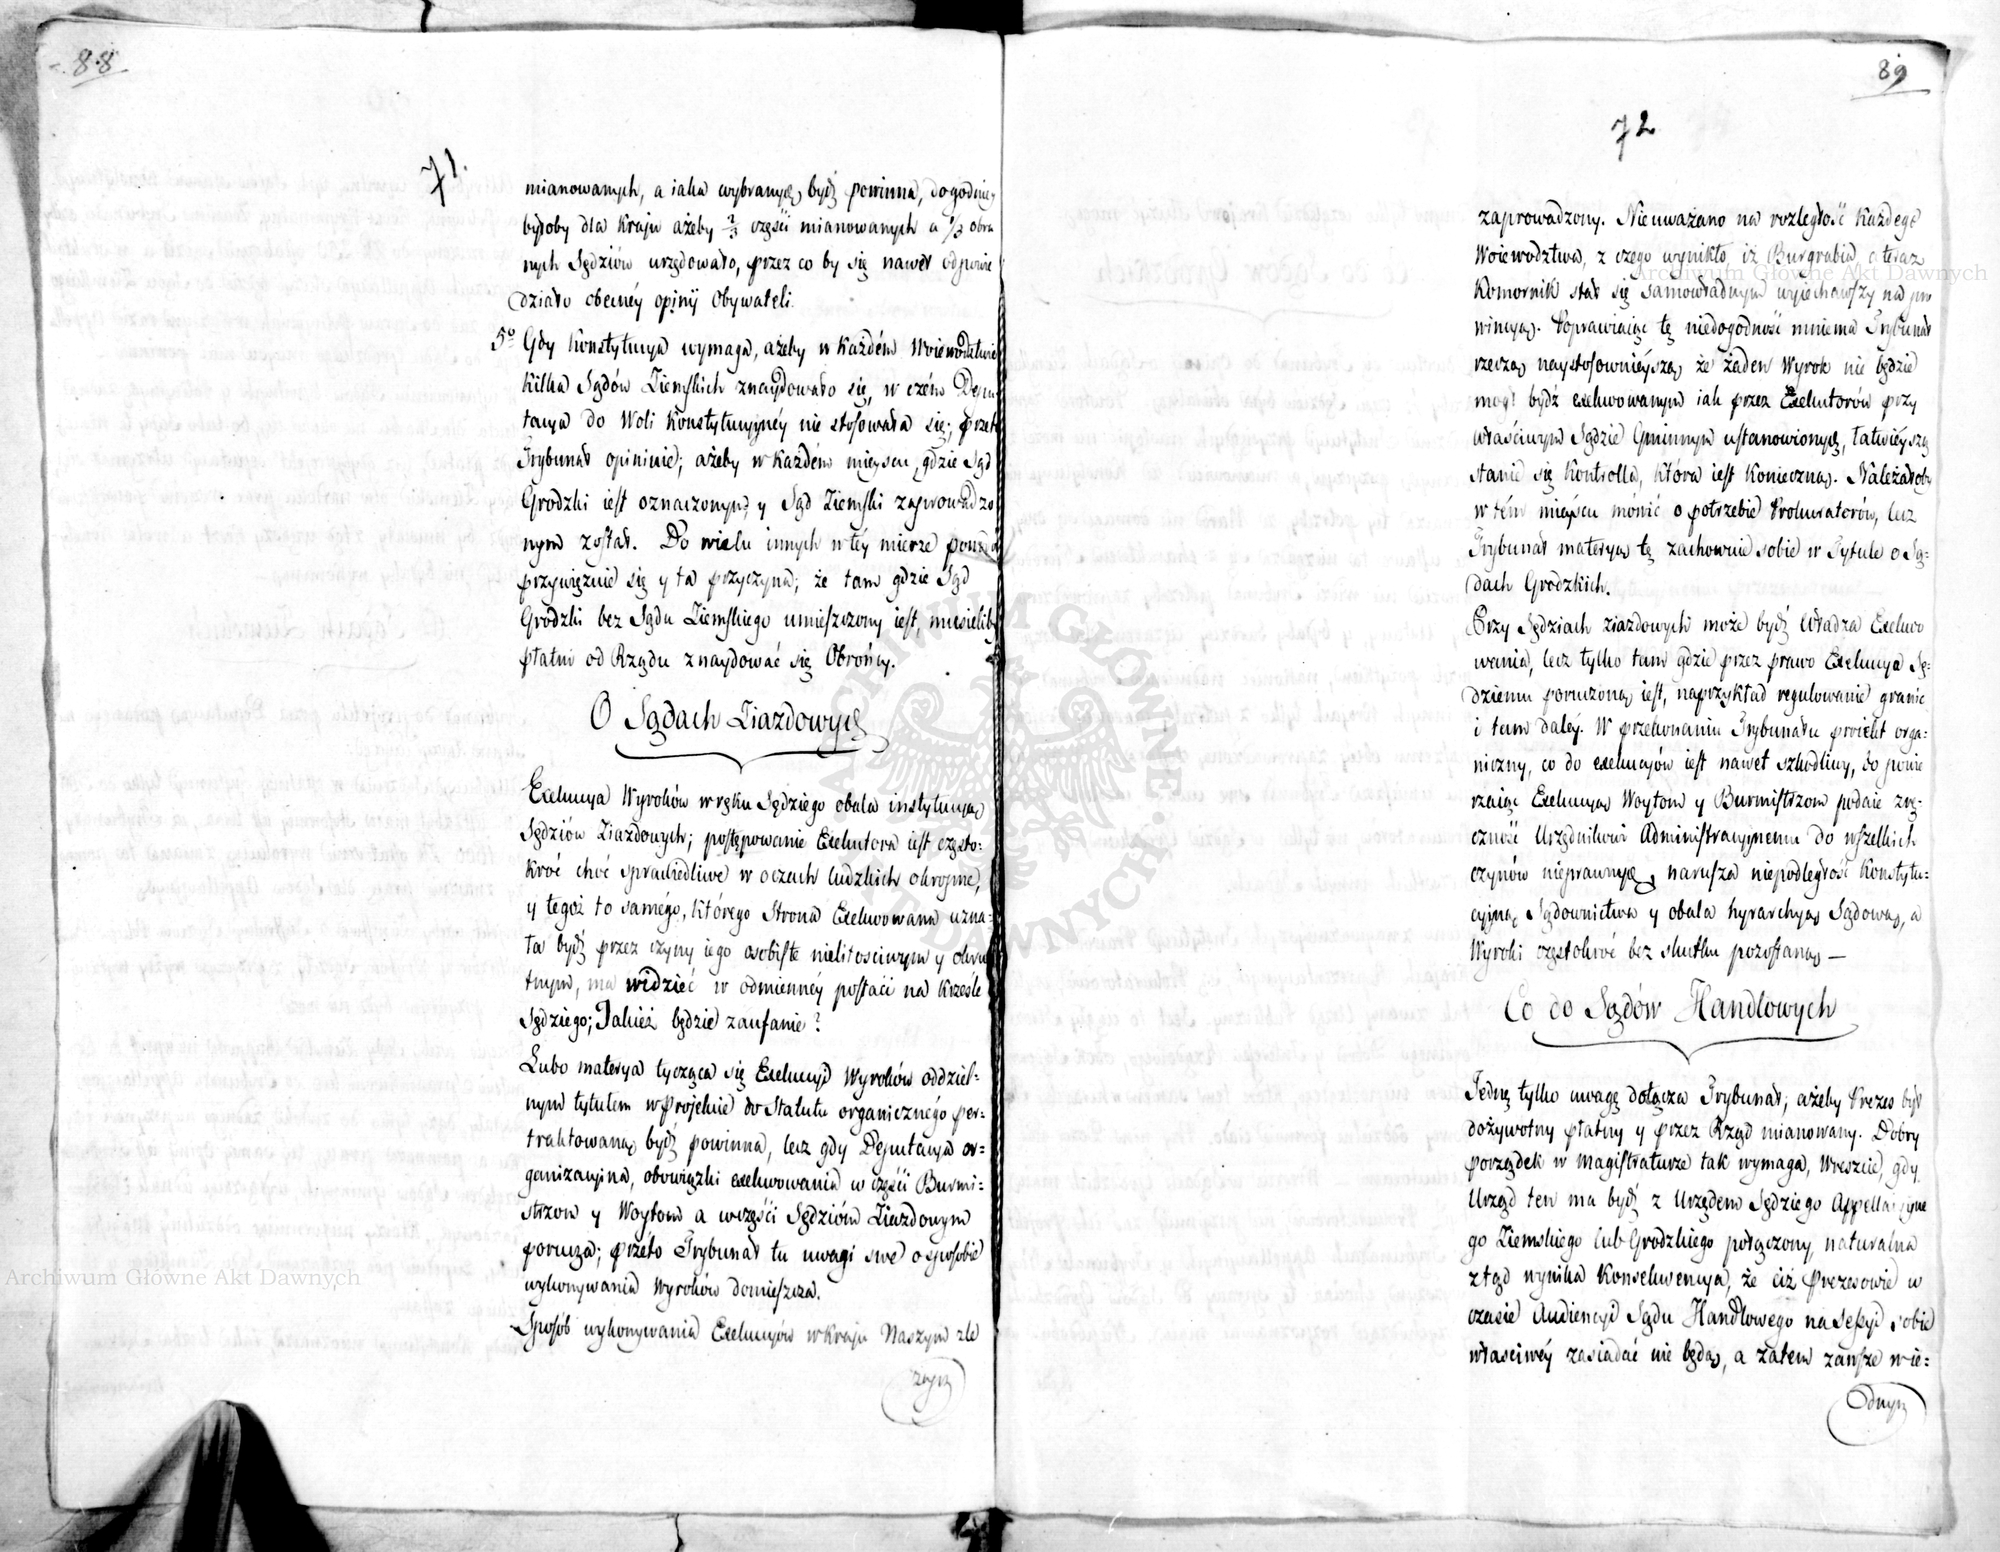 88
71.
mianowanych, a iaka wybranych bydź powinna, dogodniey
byłoby dla Kraju ażeby 2/3 części mianowanych a 1/3 obra
nych Sędziów urzędowało, przez co by się nawet odpowie
działo obecnéy opinij Obywateli.
5o Gdy Konstytucya wymaga, ażeby w każdém Woiewodztwie
kilka Sądów Ziemskich znaydowało się, w czém Depu
tacya do Woli Konstytucyinéy nie stosowała się; przeto
Trybunał opiniuie; ażeby w każdém mieyscu, gdzie Sąd
Grodzki iest oznaczonym, y Sąd Ziemski zaprowadzo
nym został. Do wielu innych w téy mierze
przywięzuie się y ta przyczyna; że tam gdzie Sąd
Grodzki bez Sądu Ziemskiego umieszczony iest, musieliby
płatni od Rządu znaydować się Obrońcy.
O Sądach Ziazdowych
Exekucya Wyroków w ręku Sędziego obala instytucyą
Sędziów Ziazdowych; postępowanie Exekutora iest często-
kroć choć sprawiedliwe w oczach ludzkich okropne,
y tegoż to samégo, którego Strona Exekwowana uzna-
ła bydź przez czyny iego osobiste nielitościwym y okru
tnym, ma widzieć w odmiennéy postaci na krześle
Sędziego; Jakież będzie zaufanie?
Lubo materya tycząca się Exekucyi Wyroków oddziel-
nym tytułem w Projekcie do Statutu organicznego per-
traktowaną bydź powinna, lecz gdy Deputacya or-
ganizacyina, obowiązki exekwowania w części Burmi-
strzom y Woytom a w części Sędziom Ziazdowym
porucza; przéto Trybunał tu uwagi swe o sposobie
wykonywania Wyroków domieszcza.
Sposób wykonywania Exekucyów w Kraju Naszym źle
zapr
89
72
zaprowadzony. Nieuważano na rozległość każdego
Woiewodztwa, z czego wynikło, iż Burgrabia, a teraz
Komornik stał się samowładnym wyiechawszy na pro
wincyą. Poprawiaiąc tę niedogodność mniema Trybunał
rzeczą naystosownieyszą że żaden Wyrok nie będzie
mógł bydź exekwowanym iak przez Exekutorów przy
właściwym Sądzie Gminnym ustanowionych, łatwieyszą
stanie się Kontrolla, która iest konieczną. Należałoby
w tém mieyscu mówić o potrzebie Prokuratorów, lecz
Trybunał materyą tę zachowuie sobie w Tytule o Są-
dach Grodzkich.
Przy Sędziach ziazdowych może bydź Władza Exekwo
wania, lecz tylko tam gdzie przez prawo Exekucya Sę-
dziemu poruczoną iest, naprzykład regulowanie granic
i tam daléy. W przekonaniu Trybunału proiekt orga-
niczny, co do exekucyów iest nawet szkodliwy, bo powie
rzaiąc Exekucyą Woytom y Burmistrzom podaie zrę-
czność Urzędnikowi Administracyinemu do wszelkich
czynów nieprawnych, narusza niepodległość Konstytu-
cyiną Sądownictwa y obala hyrarchyą Sądową, a
Wyroki częstokroć bez skutku pozostaną —
Co do Sądów Handlowych
Jednę tylko uwagę dołącza Trybunał; ażeby Prezes był
dożywotny płatny y przez Rząd mianowany. Dobry
porządek w Magistraturze tak wymaga, Wreszcie, gdy
Urząd ten ma bydź z Urzędem Sędziego Appellacyine
go Ziemskiego lub Grodzkiego połączony, naturalna
ztąd wynika Konsekwencya, że ciż Prezesowie w
czasie Audiencyi Sądu Handlowego na Sessyi sobie
właściwéy zasiadać nie będą, a zatem zawsze wie-
dnym
Archiwum Główne Akt Dawnych
Archiwum Główne Akt Dawnych
ARCHIWUM GŁÓWNE AKT DAWNYCH